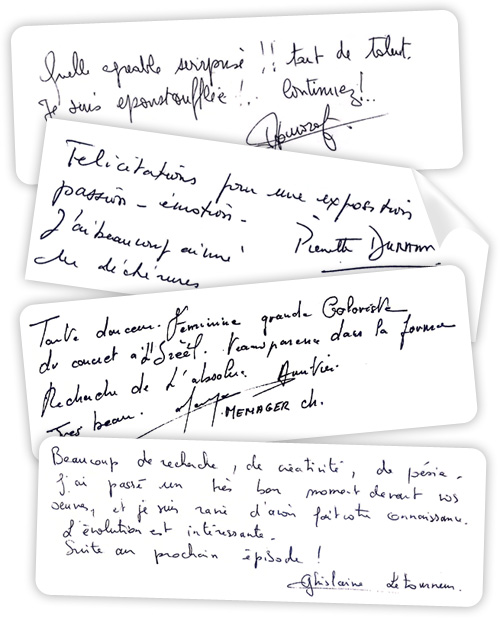 Quelle agréable surprise !! tant de talent.
Je suis époustouflée !.. Continuez !..
Félicitations pour une exposition
passion - émotion -
J'ai beaucoup aimé
les déchirures
Toute douceur. Féminine grande Coloriste
du concret à l'Irréel. transparence dans la forme
Recherche de l'absolu.
Très beau. MENAGER ch.
Beaucoup de recherche, de créativité, de poésie.
J'ai passé un très bon moment devant vos
oeuvres, et je suis ravie d'avoir fait votre connaissance.
L'évolution est intéressante.
Suite au prochain épisode !
Ghislaine Letourneur.